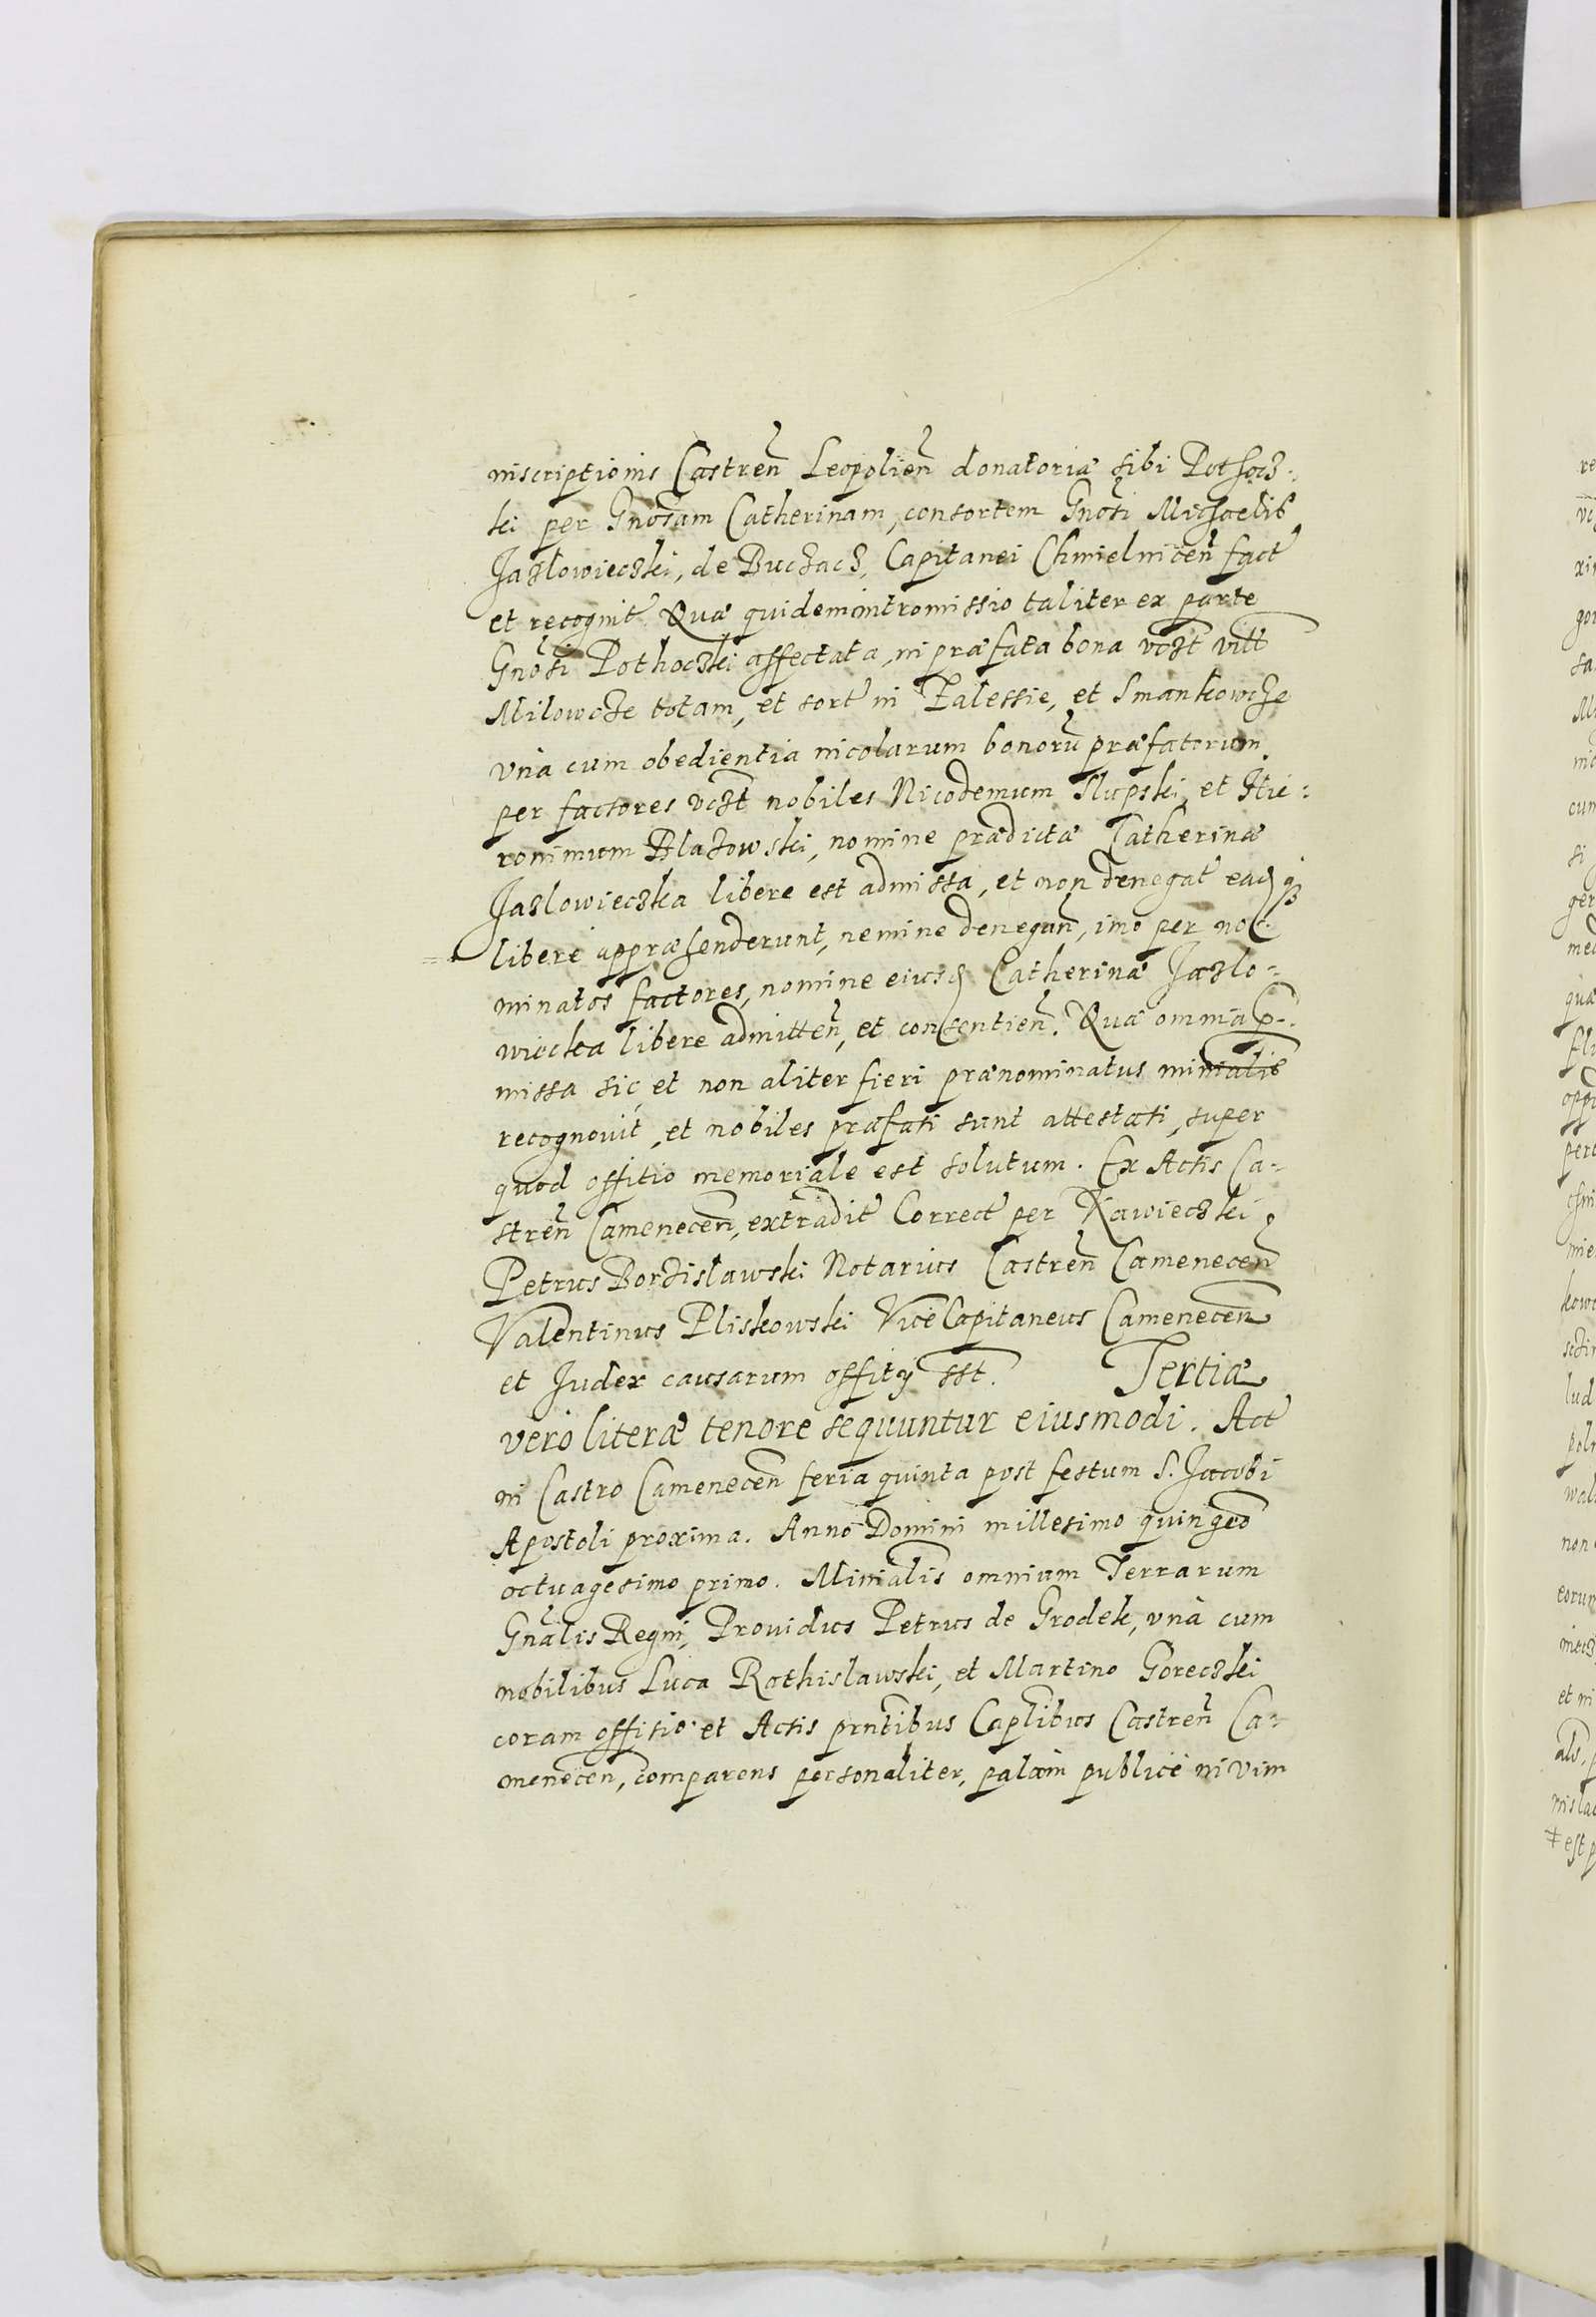 inscriptionis Castreñ Leopolieñ donatoriæ sibi Pothocz-
ki per Gnosam Catherinam, consortem Gnosi Michaelis
Jazlowieczki, de Buczacz, Capitanei Chmielniceñ fact
et recognit Quæ quidem intromissio taliter ex parte
Gnosi Pothoczki affectata, in præfata bona vdzt vill
Milowcze totam, et sort in Zalessie, et Smankowcze
vnà cum obedientia incolarum bonorũ præfatorum
per factores vdzt nobiles Nicodemum Slupski, et Hie-
ronimum Blazowski, nomine prædictæ Catherinæ
Jazlowieczka libere est admissa, et non denegat
liberè appræhenderunt, nemine denegañ, imo per no-
minatos factores, nomine eiusd Catherinæ Jazlo-
wiecka libere admitteñ, et consentieñ. Quæ omnia p-
missa sic, et non aliter fieri prænominatus minialis
recognouit, et nobiles præfati sunt attestati, super
quod offitio memoriale est solutum. Ex Actis Ca-
streñ Cameneceñ, extradit Correct per Kawieczki
Petrus Bordzislawski Notarius Castreñ Cameneceñ
Valentinus Pliskowski ViceCapitaneus Cameneceñ
et Judex causarum offitÿ sst. Tertiæ
verò literæ tenore sequuntur eiusmodi. Act
in Castro Cameneceñ feria quinta post festum S. Jacobi
Apostoli proxima. Anno Domini millesimo quingeo
octuagesimo primo. Minialis omnium Terrarum
Gnalis Regni, Prouidus Petrus de Grodek, vnà cum
nobilibus Luca Rothislawski, et Martino Goreczki
coram offitio et Actis prntibus Caplibus Castreñ Ca-
meneceñ, comparens personaliter, palàm publicè in vim